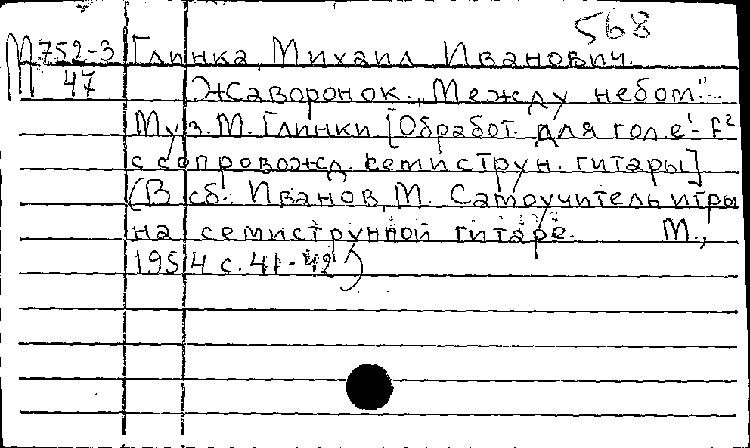 568
М 752-3 Глинка, Михаил Иванович.
47 Жаворонок. „Между небом"...
Муз. М. Глинки [Обработ. для гол. e¹-f²
с сопровожд. семиструн. гитары]
(В сб.: Иванов, М. Самоучитель игры
на семиструнной гитаре. М.,
1954 с. 41-42)